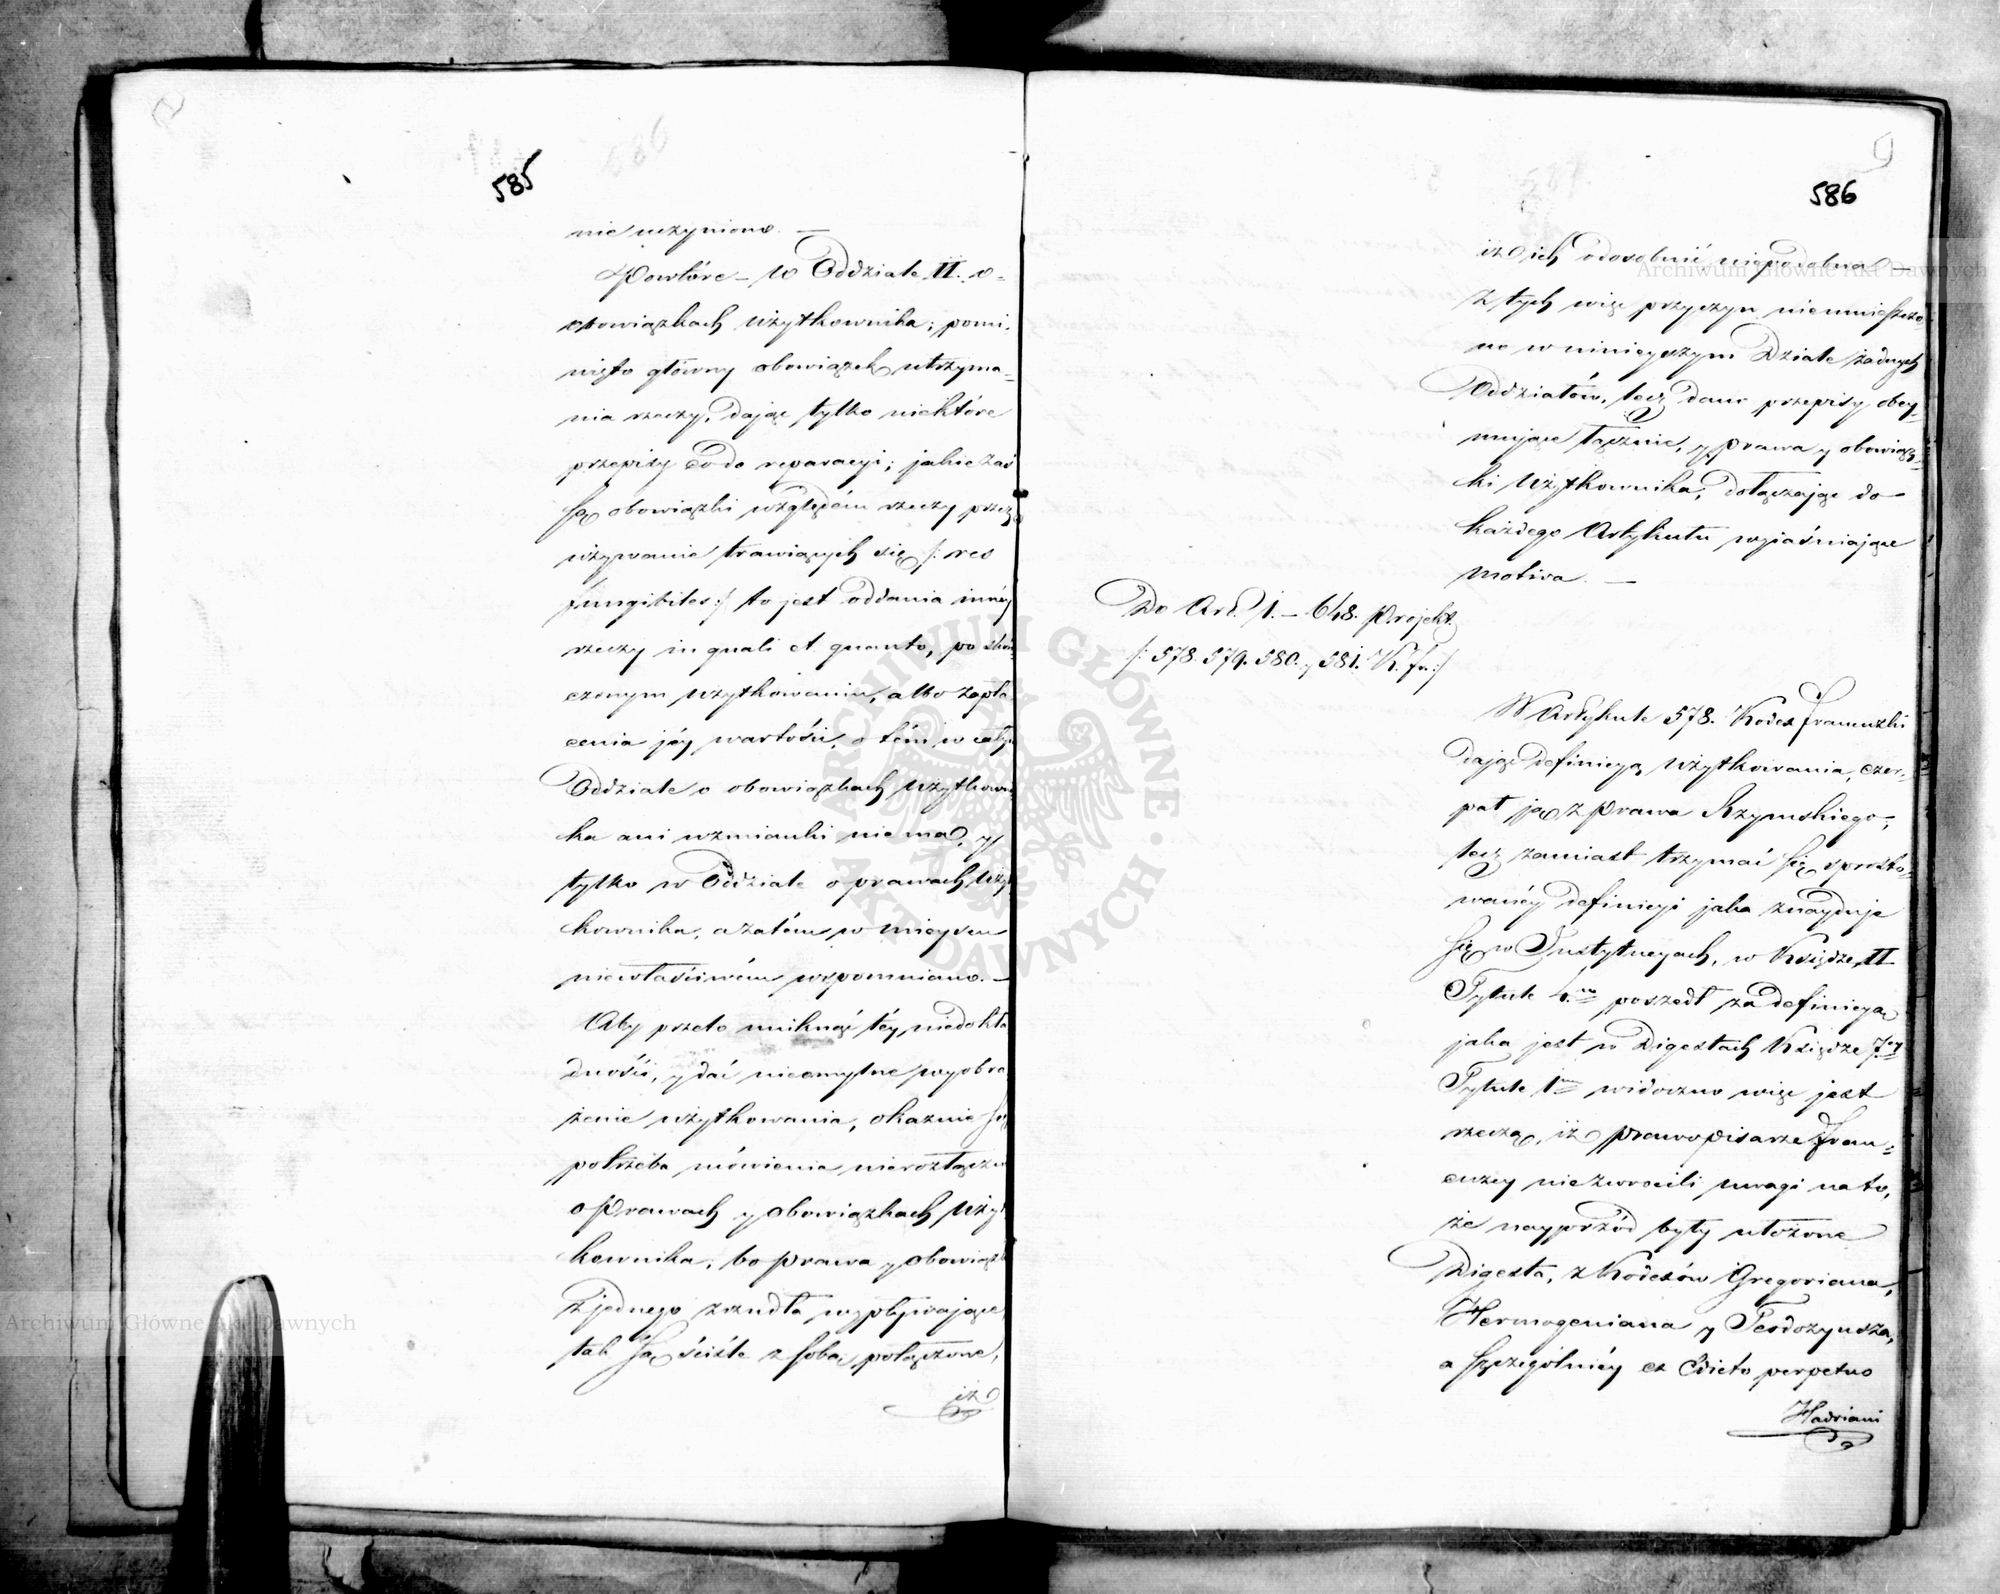 585
nie uczyniono. —
Powtóre — w Oddziale II. o
obowiązkach użytkownika; pomi-
nięto główny obowiązek utrzyma-
nia rzeczy, dając tylko niektóre
przepisy co do reparacyi; jakie zaś
są obowiązki względem rzeczy przez
używanie trawiących się /: res
fungibiles :/ to jest oddania innéy
rzeczy in quali et quanto, po skoń-
czonym użytkowaniu, albo zapła
cenia jéy wartości, o tém w całym
Oddziale o obowiązkach użytkowni
ka ani wzmianki nie ma, y
tylko w Oddziale o prawach użyt
kownika, a zatém w mieyscu
niewłaściwém wspomniano. —
Aby przeto uniknąć téy niedokła
dności, y dać nieomylne wyobra
żenie użytkowania, okaznie się
potrzeba mówienia nierozłącznie
o prawach y obowiązkach użyt
kownika, bo prawa y obowiązki
z jednego zrzudła wypływające
tak są ściśle z sobą połączone,
iż
586
iż ich odosobnić niepodobna —
Z tych więc przyczyn nieumieszczo
no w ninieyszym Dziale żadnych
Oddziałów, lecz dano przepisy obey-
mujące łącznie, y prawa y obowiąz-
ki użytkownika, dołączając do
każdego Artykułu wyjaśniające
motiva. —
Do Art. 1. — 648. Projekt.
/: 578. 579. 580. y 581. K. fr. :/
W Artykule 578. Kodex francuzki
dając definicyą użytkowania, czer-
pał ją z prawa Rzymskiego,
lecz zamiast trzymać się sprosto-
wanéy definicyi jaka znayduje
się w Instytucyach, w Księdze II
Tytule 4.m poszedł za definicyą
jaka jest w Digestach Księdze 7éy
Tytule 1m widoczno więc jest
rzeczą, iż prawopisarze fran-
cuzcy nie zwrócili uwagi na to,
że nayprzód były ułożone
Digesta, z Kodexów Gregoriana,
Hermogeniana y Teodozyusza,
a szczególniéy ex Edicto perpetuo
Hadriani
Archiwum Główne Akt Dawnych
Archiwum Główne Akt Dawnych
ARCHIWUM GŁÓWNE AKT DAWNYCH